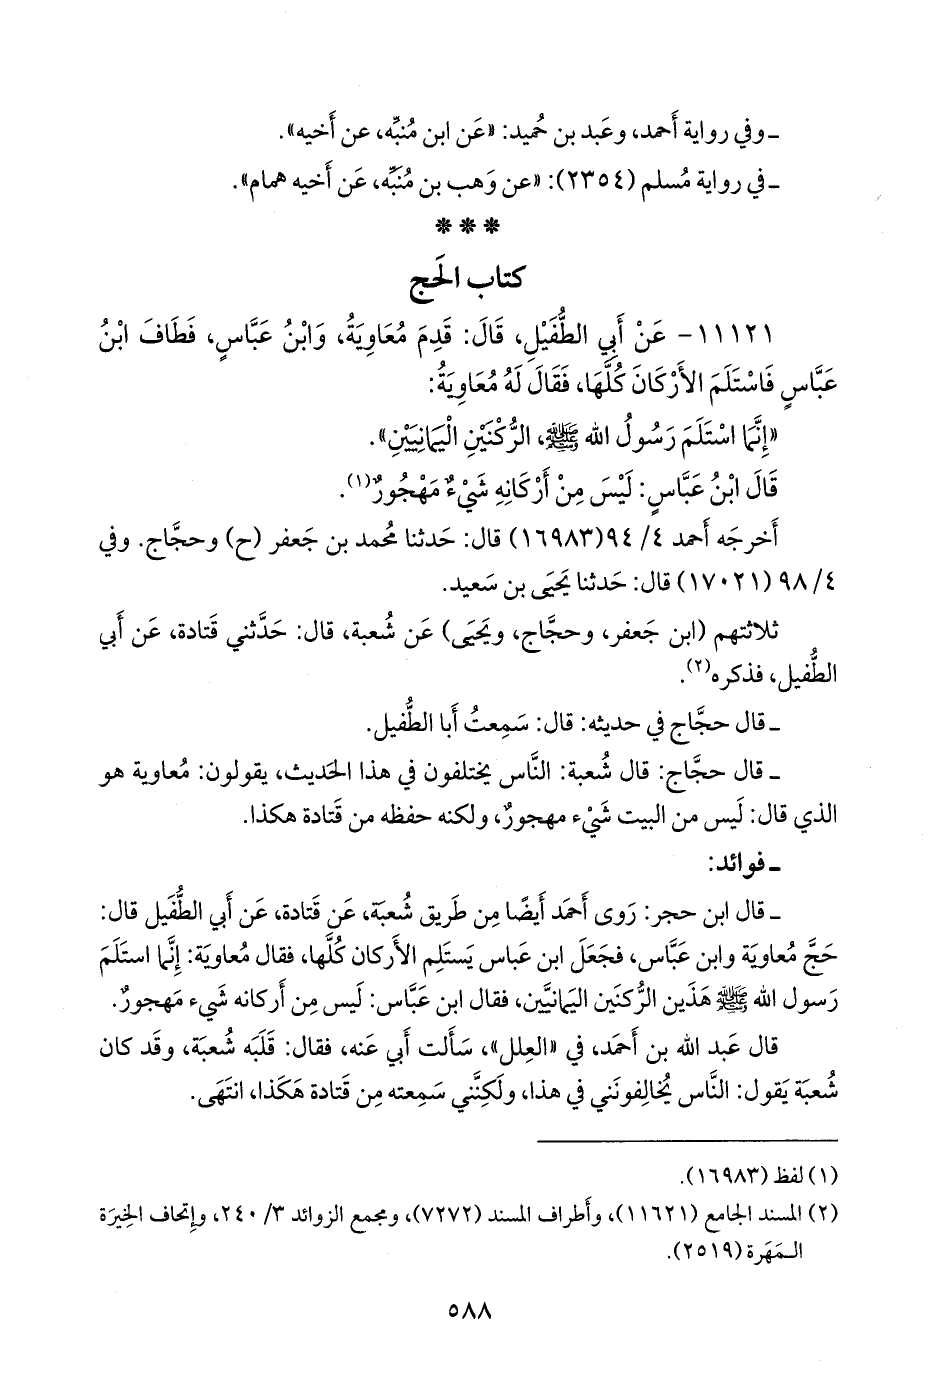 ـ وفي رواية أَحمد، وعَبد بن حُميد: «عَن ابن مُنبِّه، عن أَخيه».
ـ في رواية مُسلم (٢٣٥٤): «عن وَهب بن مُنَبِّه، عَن أَخيه همام».
***
كتاب الحَج
١١١٢١- عَنْ أَبِي الطُّفَيْلِ، قَالَ: قَدِمَ مُعَاوِيَةُ، وَابْنُ عَبَّاسٍ، فَطَافَ ابْنُ
عَبَّاسٍ فَاسْتَلَمَ الأَرْكَانَ كُلَّهَا، فَقَالَ لَهُ مُعَاوِيَةُ:
«إِنَّمَا اسْتَلَمَ رَسُولُ الله ﷺ، الرُّكْنَيْنِ الْيَمَانِيَيْنِ».
قَالَ ابْنُ عَبَّاسٍ: لَيْسَ مِنْ أَرْكَانِهِ شَيْءٌ مَهْجُورٌ(١).
أَخرجَه أَحمد ٤/ ٩٤(١٦٩٨٣) قال: حَدثنا مُحمد بن جَعفر (ح) وحجَّاج. وفي
٤/ ٩٨ (١٧٠٢١) قال: حَدثنا يَحيَى بن سَعيد.
ثلاثتهم (ابن جَعفر، وحجَّاج، ويَحيَى) عَن شُعبة، قال: حَدَّثني قَتادة، عَن أَبي
الطُّفيل، فذكره(٢).
ـ قال حجَّاج في حديثه: قال: سَمِعتُ أَبا الطُّفيل.
ـ قال حجَّاج: قال شُعبة: النَّاس يختلفون في هذا الحَديث، يقولون: مُعاوية هو
الذي قال: لَيس من البيت شَيْء مهجورٌ، ولكنه حفظه من قَتادة هكذا.
ـ فوائد:
ـ قال ابن حجر: رَوى أَحمَد أَيضًا مِن طَريق شُعبَة، عَن قَتادة، عَن أَبي الطُّفَيل قال:
حَجَّ مُعاويَة وابن عَبَّاس، فجَعَلَ ابن عَباس يَستَلِم الأَركان كُلَّها، فقال مُعاويَة: إِنَّما استَلَمَ
رَسول الله ﷺ هَذَين الرُّكنَين اليَمانيَّين، فقال ابن عَبَّاس: لَيس مِن أَركانه شَيء مَهجورٌ.
قال عَبد الله بن أَحمَد، في «العِلل»، سَأَلت أَبي عَنه، فقال: قَلَبَه شُعبَة، وقَد كان
شُعبَة يَقول: النَّاس يُخالِفونَني في هذا، ولَكِنَّني سَمِعته مِن قَتادة هَكَذا، انتَهَى.
(١) لفظ (١٦٩٨٣).
(٢) المسند الجامع (١١٦٢١)، وأَطراف المسند (٧٢٧٢)، ومجمع الزوائد ٣/ ٢٤٠، وإِتحاف الخِيرَة
الـمَهَرة (٢٥١٩).
٥٨٨